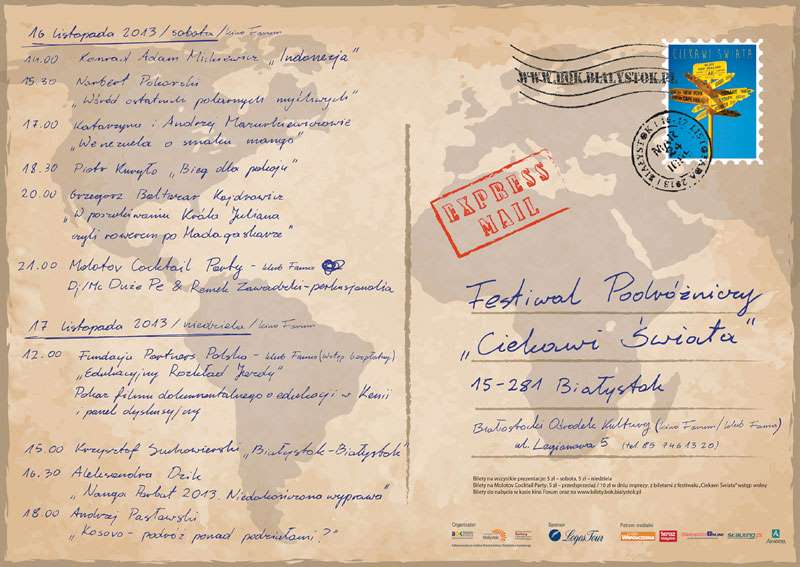 16 listopada 2013 / sobota / kino Forum
14.00 Konrad Adam Mickiewicz „Indonezja"
15.30 Norbert Pokorski
„Wśród ostatnich polarnych myśliwych"
17.00 Katarzyna i Andrzej Mazurkiewiczowie
„Wenezuela o smaku mango"
18.30 Piotr Kuryło „Bieg dla pokoju"
20.00 Grzegorz Baltazar Kajdrowicz
„W poszukiwaniu Króla Juliana
czyli rowerem po Madagaskarze"
21.00 Molotov Cocktail Party - klub Fama
Dj/Mc Duże Pe & Romek Zawadzki - perkusjonalia
17 listopada 2013 / niedziela / kino Forum
12.00 Fundacja Partners Polska - klub Fama (wstęp bezpłatny)
„Edukacyjny Rozkład Jazdy"
Pokaz filmu dokumentalnego o edukacji w Kenii
i panel dyskusyjny
15.00 Krzysztof Suchowierski „Białystok-Białystok"
16.30 Aleksandra Dzik
„Nanga Parbat 2013. Niedokończona wyprawa"
18.00 Andrzej Pasławski
„Kosovo - podróż ponad podziałami?"
WWW.BOK.BIALYSTOK.PL
CIEKAWI ŚWIATA
BIAŁYSTOK | 16-17 LISTOPADA 2013
EXPRESS
MAIL
Festiwal Podróżniczy
„Ciekawi Świata"
15-281 Białystok
Białostocki Ośrodek Kultury (kino Forum/klub Fama)
ul. Legionowa 5 (tel 85 746 13 20)
Bilety na wszystkie prezentacje: 5 zł – sobota, 5 zł – niedziela
Bilety na Molotov Cocktail Party: 5 zł - przedsprzedaż / 10 zł w dniu imprezy; z biletami z festiwalu „Ciekawi Świata" wstęp wolny
Bilety do nabycia w kasie kina Forum oraz na www.bilety.bok.bialystok.pl
Organizator
Sponsor
Patroni medialni
BOK
Białystok
Logos Tour
Współczesna
teraz
scouting.pl